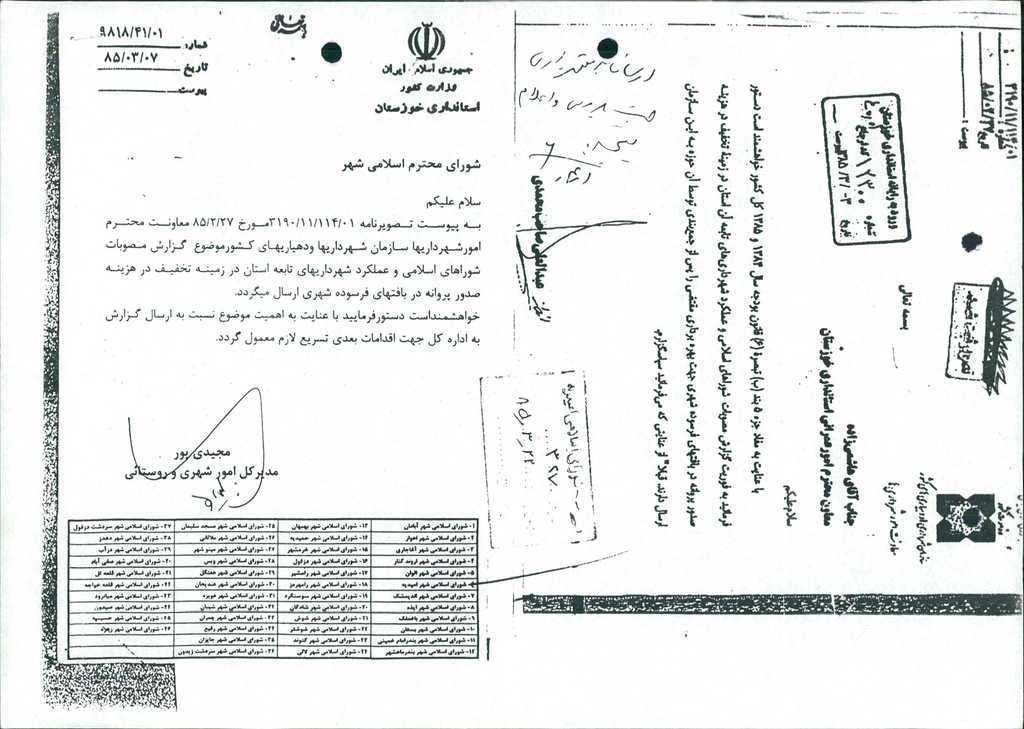 جمهوری اسلامی ایران
وزارت کشور
استانداری خوزستان
شماره ۹۸۱۸/۴۱/۰۱
تاریخ ۸۵/۰۳/۰۷
پیوست
شورای محترم اسلامی شهر
سلام علیکم
به پیوست تصویرنامه ۳۱۹۰/۱۱/۱۱۴/۰۱مورخ ۸۵/۲/۲۷ معاونت محترم
امورشهرداریها سازمان شهرداریها ودهیاریهای کشورموضوع گزارش مصوبات
شوراهای اسلامی و عملکرد شهرداریهای تابعه استان در زمینه تخفیف در هزینه
صدور پروانه در بافتهای فرسوده شهری ارسال میگردد.
خواهشمنداست دستورفرمایید با عنایت به اهمیت موضوع نسبت به ارسال گزارش
به اداره کل جهت اقدامات بعدی تسریع لازم معمول گردد.
مجیدی پور
مدیرکل امور شهری و روستائی
۱- شورای اسلامی شهر آبادان
۲- شورای اسلامی شهر اهواز
۳- شورای اسلامی شهر آغاجاری
۴- شورای اسلامی شهر اروند کنار
۵- شورای اسلامی شهر الوان
۶- شورای اسلامی شهر امیدیه
۷- شورای اسلامی شهر اندیمشک
۸- شورای اسلامی شهر ایذه
۹- شورای اسلامی شهر باغملک
۱۰- شورای اسلامی شهر بستان
۱۱- شورای اسلامی شهر بندرامام خمینی
۱۲- شورای اسلامی شهر بندرماهشهر
۱۳- شورای اسلامی شهر بهبهان
۱۴- شورای اسلامی شهر حمیدیه
۱۵- شورای اسلامی شهر خرمشهر
۱۶- شورای اسلامی شهر دزفول
۱۷- شورای اسلامی شهر رامشیر
۱۸- شورای اسلامی شهر رامهرمز
۱۹- شورای اسلامی شهر سوسنگرد
۲۰- شورای اسلامی شهر شادگان
۲۱- شورای اسلامی شهر شوش
۲۲- شورای اسلامی شهر شوشتر
۲۳- شورای اسلامی شهر گتوند
۲۴- شورای اسلامی شهر لالی
۲۵- شورای اسلامی شهر مسجد سلیمان
۲۶- شورای اسلامی شهر ملاثانی
۲۷- شورای اسلامی شهر مینو شهر
۲۸- شورای اسلامی شهر ویس
۲۹- شورای اسلامی شهر هفتگل
۳۰- شورای اسلامی شهر هندیجان
۳۱- شورای اسلامی شهر هویزه
۳۲- شورای اسلامی شهر شیبان
۳۳- شورای اسلامی شهر چمران
۳۴- شورای اسلامی شهر رفیع
۳۵- شورای اسلامی شهر جایزان
۳۶- شورای اسلامی شهر سردشت زیدون
۳۷- شورای اسلامی شهر سردشت دزفول
۳۸- شورای اسلامی شهر دهدز
۳۹- شورای اسلامی شهر دزآب
۴۰- شورای اسلامی شهر صفی آباد
۴۱- شورای اسلامی شهر قلعه تل
۴۲- شورای اسلامی شهر قلعه خواجه
۴۳- شورای اسلامی شهر میانرود
۴۴- شورای اسلامی شهر صیدون
۴۵- شورای اسلامی شهر حسینیه
۴۶- شورای اسلامی شهر زهره
۳۱۹۰/۱۱/۱۱۴/۰۱
۸۵/۰۲/۲۷
تاریخ
پیوست :
ورود به رایانه استانداری خوزستان
شماره ۱۲۳۰۰
تاریخ ۸۵/۳/۰۳
بسمه تعالی
جناب آقای هاشمی‌زاده
معاون محترم امور عمرانی استانداری خوزستان
سلام علیکم
با عنایت به مفاد جزء ۵ بند (ب) تبصره (۶) قانون بودجه سال ۱۳۸۴ و ۱۳۸۵ کل کشور خواهشمند است دستور
فرمائید به فوریت گزارش مصوبات شوراهای اسلامی و عملکرد شهرداری‌های تابعه آن استان در زمینه تخفیف در هزینه
صدور پروانه در بافتهای فرسوده شهری جهت بهره برداری مقتضی را پس از جمع‌بندی توسط آن حوزه به این سازمان
ارسال دارند قبلاً از عنایتی که می‌فرمائید سپاسگزارم.
عبدالعلی صاحب‌محمدی
شورای اسلامی امیدیه
۳۲۷۰
۸۵,۳,۲۲